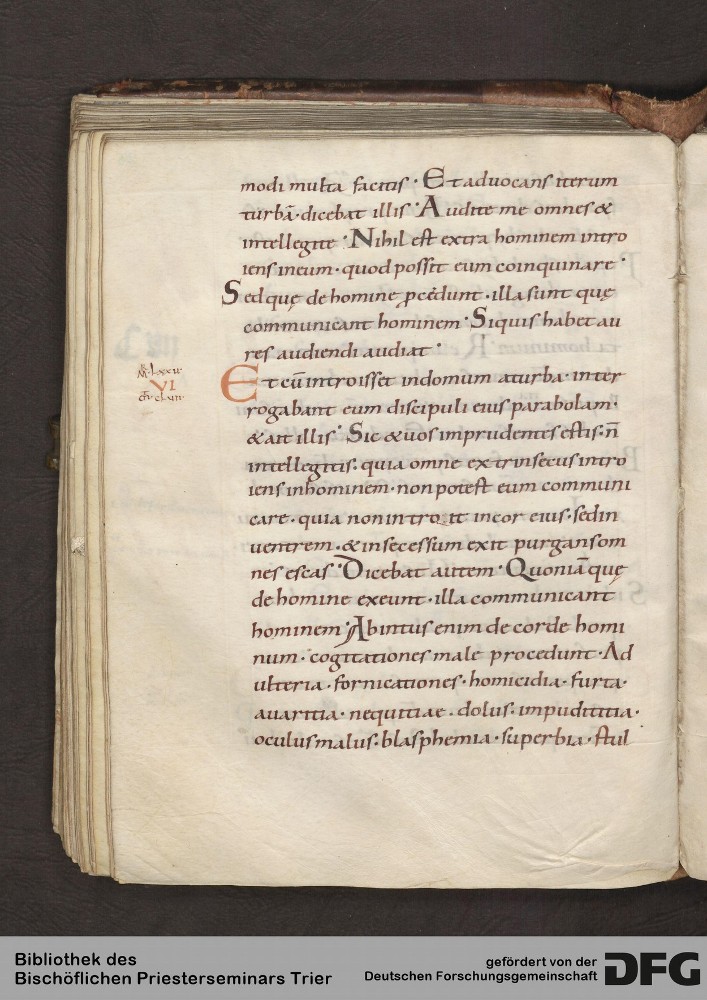 modi multa facitis · Et advocans iterum
turbā · dicebat illis · Audite me omnes &
intellegite · Nihil est extra hominem intro
iens in eum · quod possit eum coinquinare ·
Sed quę de homine pcedunt · illa sunt quę
communicant hominem · Siquis habet au
res audiendi audiat ·
VI
Et cū introisset in domum a turba · inter
rogabant eum discipuli eius parabolam ·
& ait illis · Sic & vos imprudentes estis · n̄
intellegitis · quia omne extrinsecus intro
iens in hominem · non potest eum communi
care · quia non introit in cor eius · sed in
ventrem · & in secessum exit purgans om
nes escas · Dicebat autem · Quoniā quę
de homine exeunt · illa communicant
hominem · Ab intus enim de corde homi
num · cogitationes male procedunt · Ad
ulteria · fornicationes · homicidia · furta ·
avaritia · nequitiae · dolus · impudititia ·
oculus malus · blasphemia · superbia · stul
Bibliothek des
Bischöflichen Priesterseminars Trier
gefördert von der
Deutschen Forschungsgemeinschaft
DFG